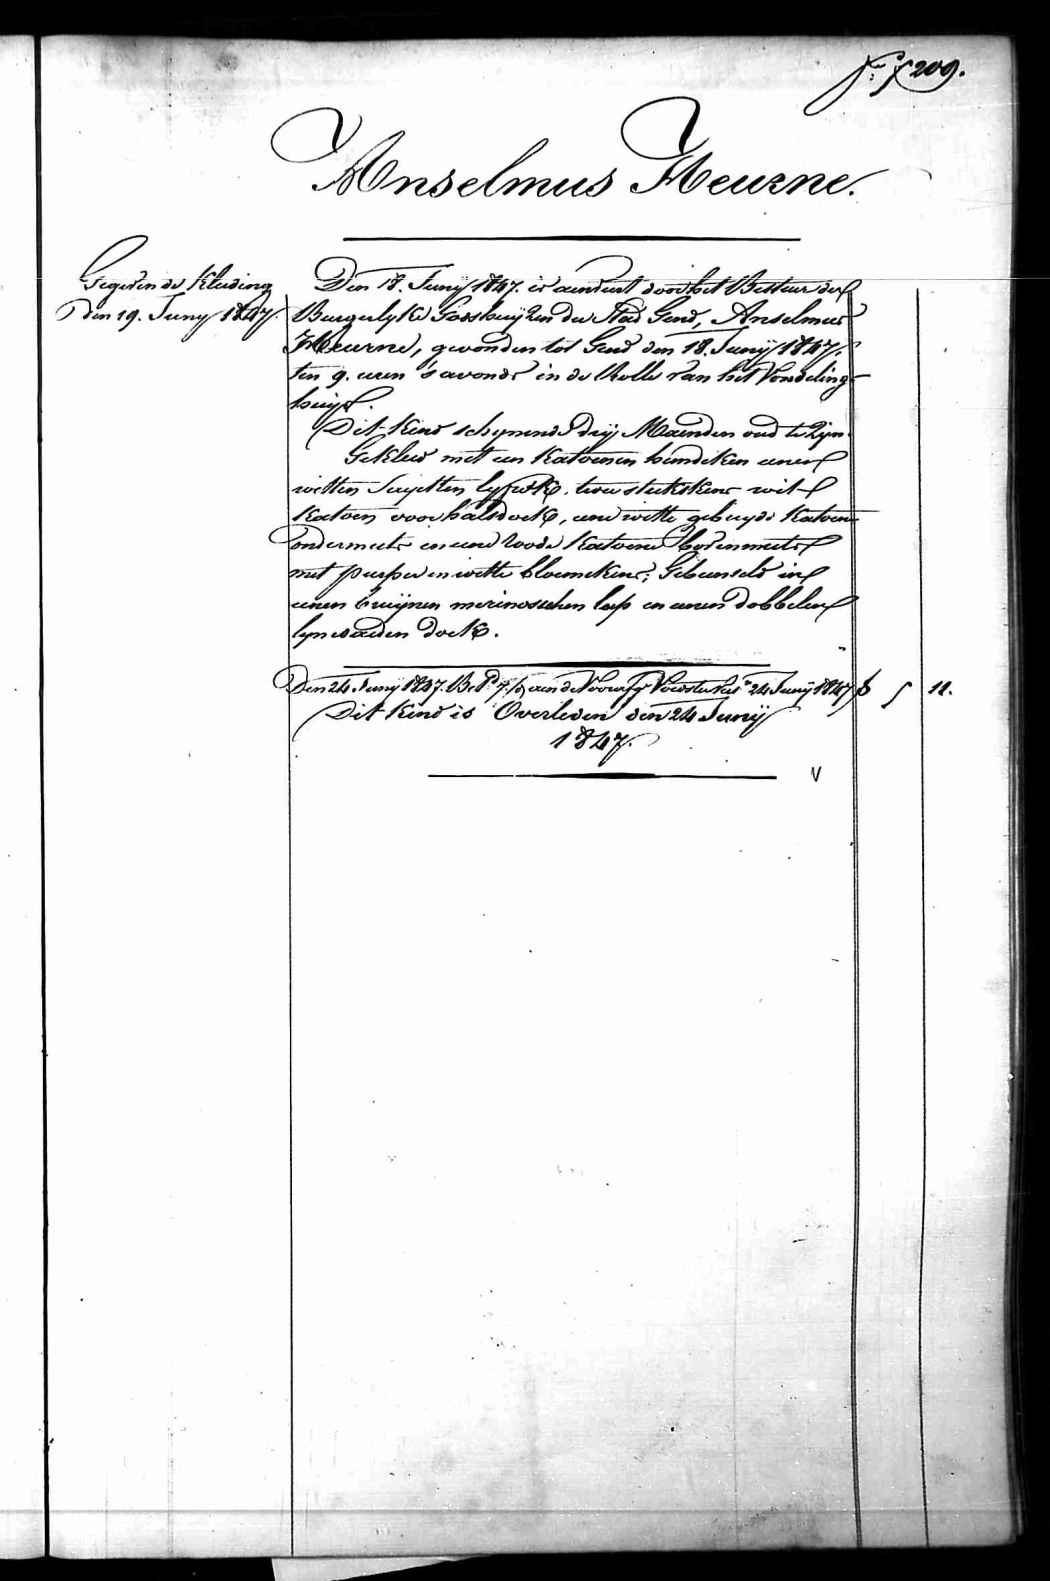 fo. 209.
Anselmus Heurne.
Gegeven de Kleding
den 19. Juny 1847.
Den 18. Junij 1847. is aenveirt door het Besteur der
Burgerlyke Godshuijzen der Stad Gend, Anselmus
Heurne, gevonden tot Gend den 18. Junij 1847.
ten 9. uren 's avonds in de Rolle van het Vondeling-
huijs.
Dit kind schynende drij Maenden oud te Zijn.
Gekleed met een katoenen hemdeken eenen
witten lyfrok, twee stukskens wit
katoen voor halsdoek, eene witte katoene
ondermuts en eene roode katoene bovenmuts
met purper en witte bloemekens; Gebunseld in
eenen bruijnen merinoschen lap en eenen dobbelen
lynwaeden doek.
Den 24 Junij 1847. Bet. aan de Voedster tot 24 Junij 1847 11.
Dit kind is Overleden den 24 Junij
1847.